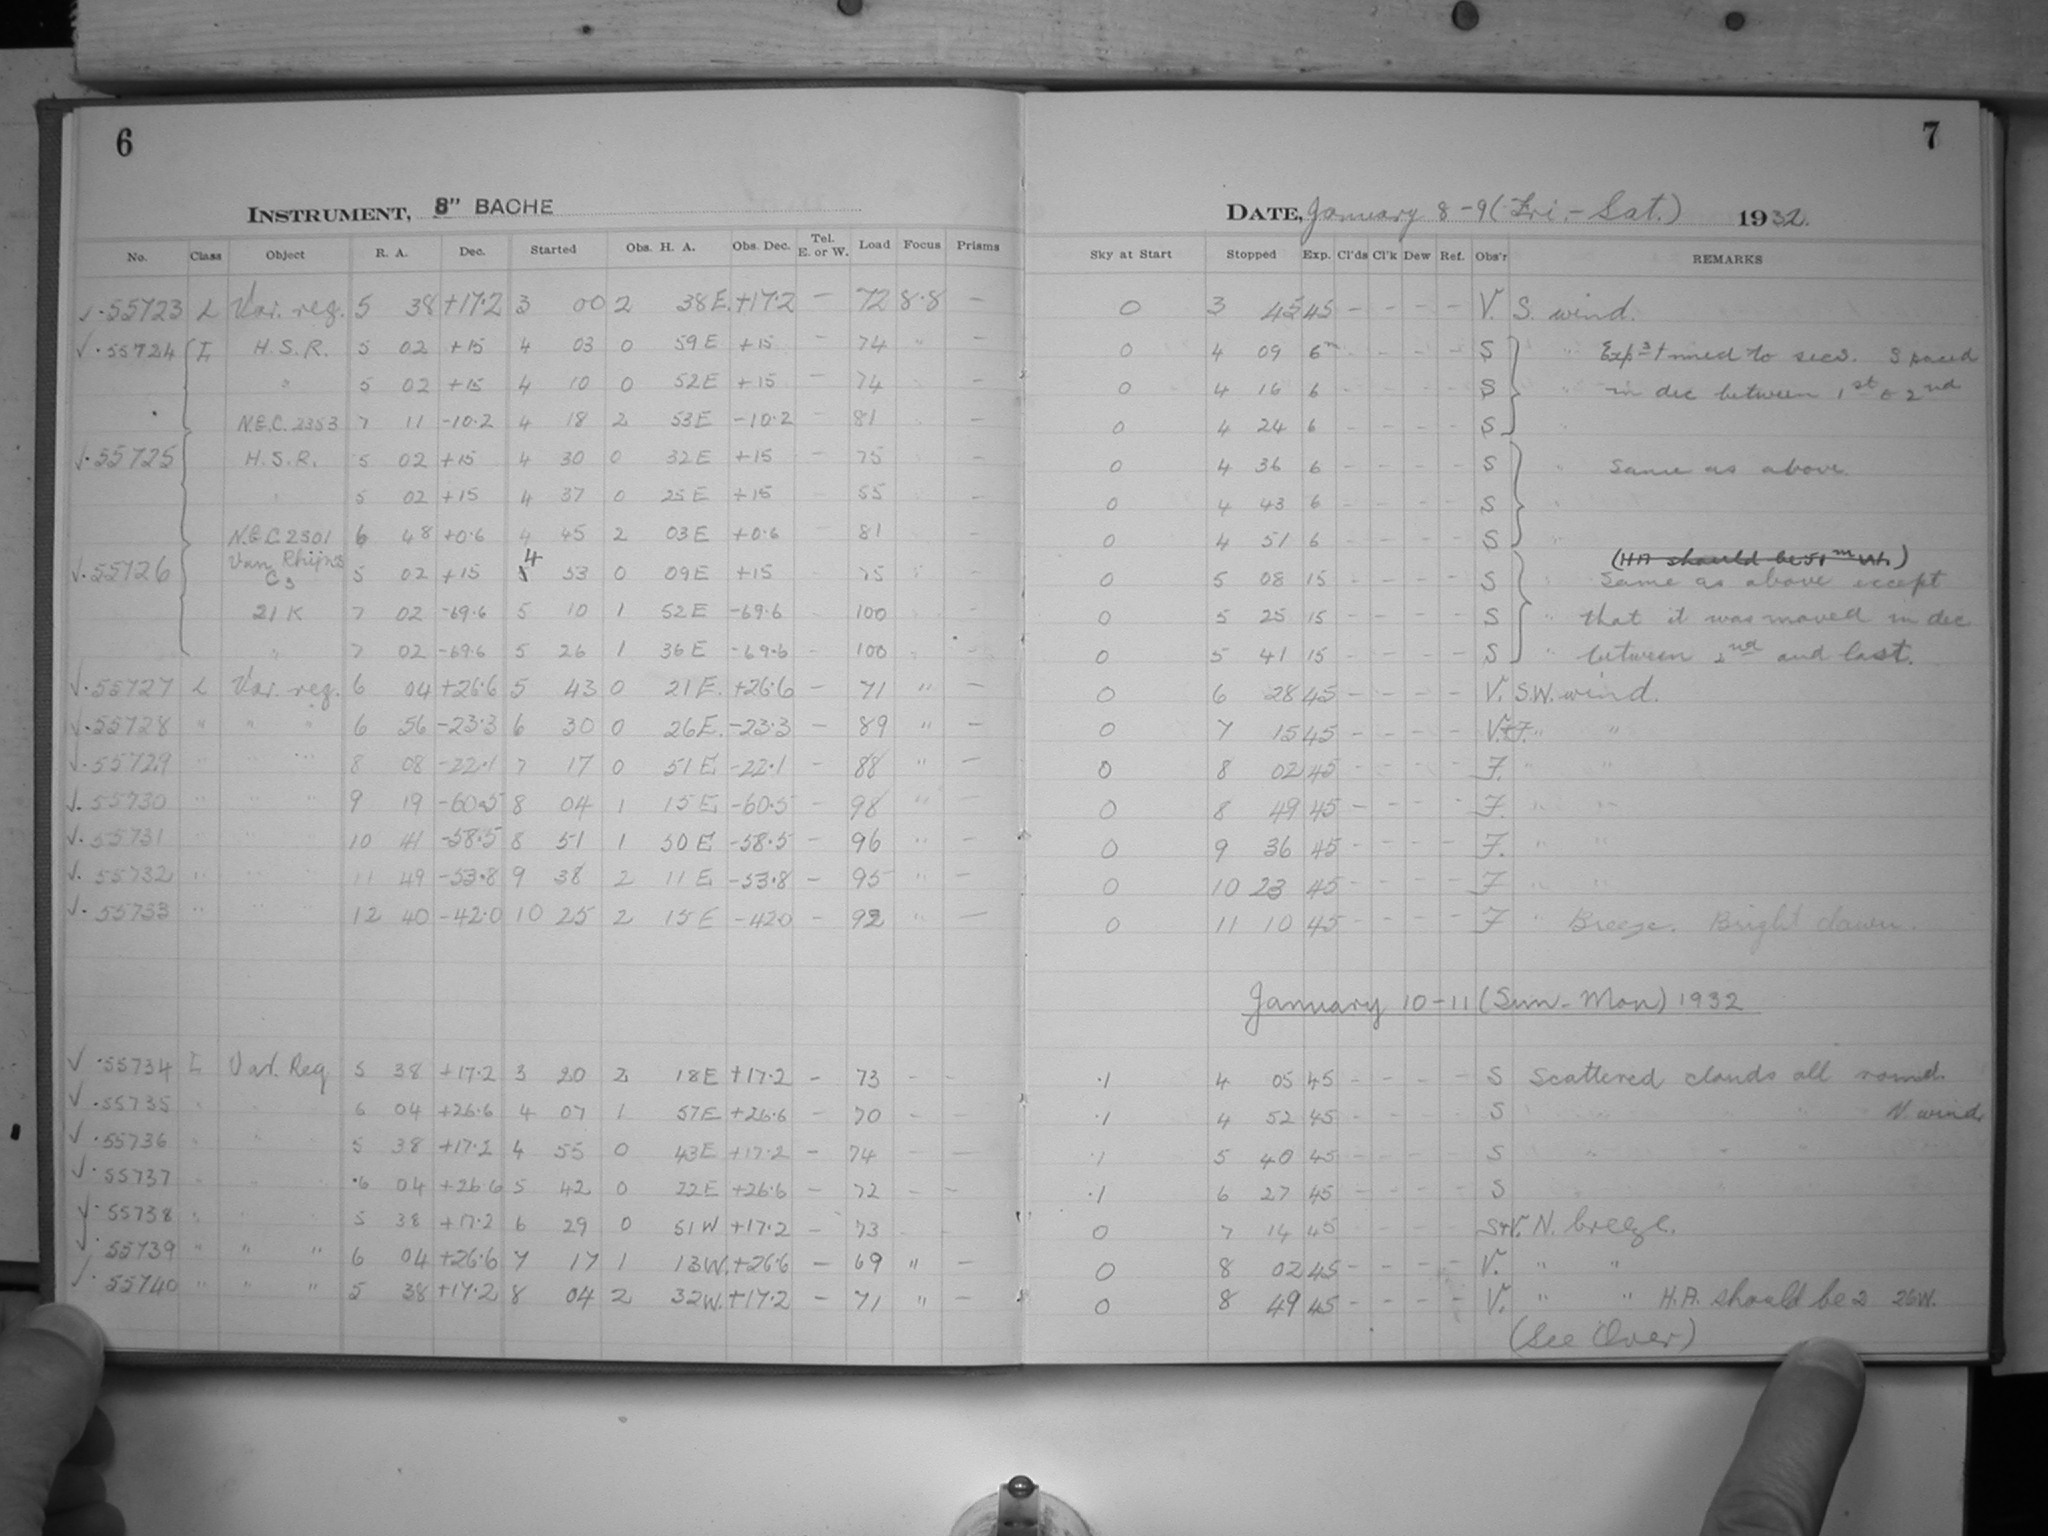 6
7
INSTRUMENT, 8" BACHE
DATE, January 8-9 (Fri.-Sat.) 1932.
No. Class Object R. A. Dec. Started Obs. H. A. Obs. Dec. Tel. E. or W. Load Focus Prisms Sky at Start Stopped Exp. Cl'ds Cl'k Dew Ref. Obs'r REMARKS
√·55723 L Var. reg. 5 38 +17.2 3 00 2 38E. +17.2 – 72 8.8 – 0 3 45 45 – – – – V. S. wind.
√·55724 I H.S.R. 5 02 +15 4 03 0 59E +15 – 74 " – 0 4 09 6m – – – – S " Exps timed to secs. Spaced
" 5 02 +15 4 10 0 52E +15 – 74 – 0 4 16 6 – – – – S " in dec between 1st & 2nd
N.G.C. 2353 7 11 -10.2 4 18 2 53E -10.2 81 – 0 4 24 6 – – – – S "
√·55725 H.S.R. 5 02 +15 4 30 0 32E +15 – 75 – 0 4 36 6 – – – – S " Same as above.
" 5 02 +15 4 37 0 25E +15 55 – 0 4 43 6 – – – – S "
N.G.C. 2301 6 48 +0.6 4 45 2 03E +0.6 81 – 0 4 51 6 – – – – S "
(HA should be 51m W.)
√·55726 Van Rhijn's C3 5 02 +15 4 53 0 09E +15 75 – 0 5 08 15 – – – – S " Same as above except
21 K 7 02 -69.6 5 10 1 52E -69.6 100 – 0 5 25 15 – – – – S " that it was moved in dec
" 7 02 -69.6 5 26 1 36E -69.6 100 – 0 5 41 15 – – – – S " between 2nd and last.
√·55727 L Var. reg. 6 04 +26.6 5 43 0 21E. +26.6 – 71 " – 0 6 28 45 – – – – V. S.W. wind.
√·55728 " " " 6 56 -23.3 6 30 0 26E. -23.3 – 89 " – 0 7 15 45 – – – – V.+F. " "
√·55729 " " " 8 08 -22.1 7 17 0 51E -22.1 – 88 " – 0 8 02 45 – – – – F. " "
√·55730 " " " 9 19 -60.5 8 04 1 15E -60.5 – 98 " – 0 8 49 45 – – – – F. " "
√·55731 " " " 10 41 -58.5 8 51 1 50E -58.5 – 96 " – 0 9 36 45 – – – – F. " "
√·55732 " " " 11 49 -53.8 9 38 2 11E -53.8 – 95 " – 0 10 23 45 – – – – F " "
√·55733 " " " 12 40 -42.0 10 25 2 15E -420 – 92 " – 0 11 10 45 – – – – F " Breeze. Bright dawn.
January 10-11 (Sun-Mon) 1932
√·55734 I Var. Reg 5 38 +17.2 3 20 2 18E +17.2 – 73 – – .1 4 05 45 – – – – S Scattered clouds all round.
√·55735 " " 6 04 +26.6 4 07 1 57E +26.6 – 70 – – .1 4 52 45 – – – – S " " N. wind
√·55736 " " 5 38 +17.2 4 55 0 43E +17.2 – 74 – – .1 5 40 45 – – – – S " "
√·55737 " " " 6 04 +26.6 5 42 0 22E +26.6 – 72 – – .1 6 27 45 – – – – S
√·55738 " " " 5 38 +17.2 6 29 0 51W +17.2 – 73 0 7 14 45 – – – – S+V. N. breeze.
√·55739 " " " 6 04 +26.6 7 17 1 13W. +26.6 – 69 " – 0 8 02 45 – – – – V. " "
√·55740 " " " 5 38 +17.2 8 04 2 32W. +17.2 – 71 " – 0 8 49 45 – – – – V. " " H.A. should be 2 26W.
(See Over)